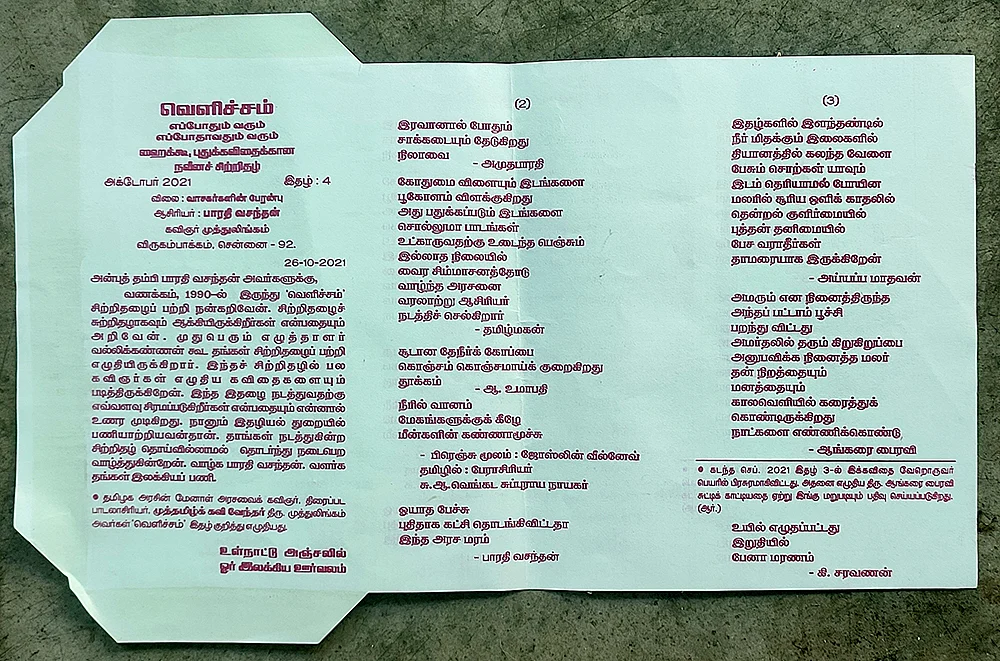 வெளிச்சம்
எப்போதும் வரும்
எப்போதாவதும் வரும்
ஹைக்கூ, புதுக்கவிதைக்கான
நவீனச் சிற்றிதழ்
அக்டோபர் 2021 இதழ் : 4
விலை : வாசகர்களின் பேரன்பு
ஆசிரியர் : பாரதி வசந்தன்
கவிஞர் முத்துலிங்கம்
விருகம்பாக்கம், சென்னை - 92.
26-10-2021
அன்புத் தம்பி பாரதி வசந்தன் அவர்களுக்கு,
வணக்கம், 1990-ல் இருந்து 'வெளிச்சம்'
சிற்றிதழைப் பற்றி நன்கறிவேன். சிற்றிதழைச்
சுற்றிதழாகவும் ஆக்கியிருக்கிறீர்கள் என்பதையும்
அறிவேன். முதுபெரும் எழுத்தாளர்
வல்லிக்கண்ணன் கூட தங்கள் சிற்றிதழைப் பற்றி
எழுதியிருக்கிறார். இந்தச் சிற்றிதழில் பல
கவிஞர்கள் எழுதிய கவிதைகளையும்
படித்திருக்கிறேன். இந்த இதழை நடத்துவதற்கு
எவ்வளவு சிரமப்படுகிறீர்கள் என்பதையும் என்னால்
உணர முடிகிறது. நானும் இதழியல் துறையில்
பணியாற்றியவன்தான். தாங்கள் நடத்துகின்ற
சிற்றிதழ் தொய்வில்லாமல் தொடர்ந்து நடைபெற
வாழ்த்துகின்றேன். வாழ்க பாரதி வசந்தன். வளர்க
தங்கள் இலக்கியப் பணி.
● தமிழக அரசின் மேனாள் அரசவைக் கவிஞர், திரைப்பட
பாடலாசிரியர், முத்தமிழ்க் கவி வேந்தர் திரு. முத்துலிங்கம்
அவர்கள் 'வெளிச்சம்' இதழ் குறித்து எழுதியது.
உள்நாட்டு அஞ்சலில்
ஓர் இலக்கிய ஊர்வலம்
(2)
இரவானால் போதும்
சாக்கடையும் தேடுகிறது
நிலாவை
- அமுதபாரதி
கோதுமை விளையும் இடங்களை
பூகோளம் விளக்குகிறது
அது பதுக்கப்படும் இடங்களை
சொல்லுமா பாடங்கள்
உட்காருவதற்கு உடைந்த பெஞ்சும்
இல்லாத நிலையில்
வைர சிம்மாசனத்தோடு
வாழ்ந்த அரசனை
வரலாற்று ஆசிரியர்
நடத்திச் செல்கிறார்
- தமிழ்மகன்
சூடான தேநீர்க் கோப்பை
கொஞ்சம் கொஞ்சமாய்க் குறைகிறது
தூக்கம்
- ஆ. உமாபதி
நீரில் வானம்
மேகங்களுக்குக் கீழே
மீன்களின் கண்ணாமூச்சு
- பிரெஞ்சு மூலம் : ஜோஸ்லின் வில்னேவ்
தமிழில் : பேராசிரியர்
சு.ஆ.வெங்கட சுப்புராய நாயகர்
ஓயாத பேச்சு
புதிதாக கட்சி தொடங்கிவிட்டதா
இந்த அரச மரம்
- பாரதி வசந்தன்
(3)
இதழ்களில் இளந்தண்டில்
நீர் மிதக்கும் இலைகளில்
தியானத்தில் கலந்த வேளை
பேசும் சொற்கள் யாவும்
இடம் தெரியாமல் போயின
மலரில் சூரிய ஒளிக் காதலில்
தென்றல் குளிர்மையில்
புத்தன் தனிமையில்
பேச வராதீர்கள்
தாமரையாக இருக்கிறேன்
- அய்யப்ப மாதவன்
அமரும் என நினைத்திருந்த
அந்தப் பட்டாம் பூச்சி
பறந்து விட்டது
அமர்தலில் தரும் கிறுகிறுப்பை
அனுபவிக்க நினைத்த மலர்
தன் நிறத்தையும்
மனத்தையும்
காலவெளியில் கரைத்துக்
கொண்டிருக்கிறது
நாட்களை எண்ணிக்கொண்டு
- ஆங்கரை பைரவி
● கடந்த செப். 2021 இதழ் 3-ல் இக்கவிதை வேறொருவர்
பெயரில் பிரசுரமாகிவிட்டது. அதனை எழுதிய திரு. ஆங்கரை பைரவி
சுட்டிக் காட்டியதை ஏற்று இங்கு மறுபடியும் பதிவு செய்யப்படுகிறது.
(ஆர்.)
உயில் எழுதப்பட்டது
இறுதியில்
பேனா மரணம்
- கி. சரவணன்